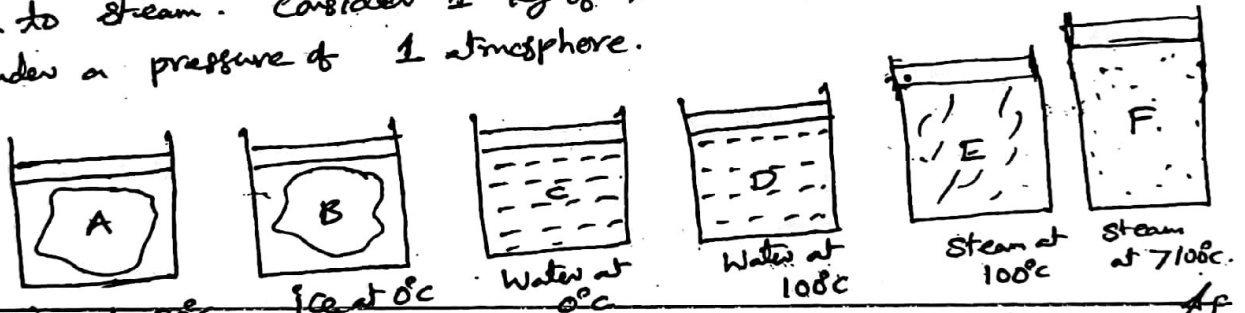 to steam. Consider 1 kg of
under a pressure of 1 atmosphere.
A
B
C
D
E
F.
ice at 0°C
Water at
0°C
Water at
100°C
Steam at
100°C
Steam
at 7100°C.